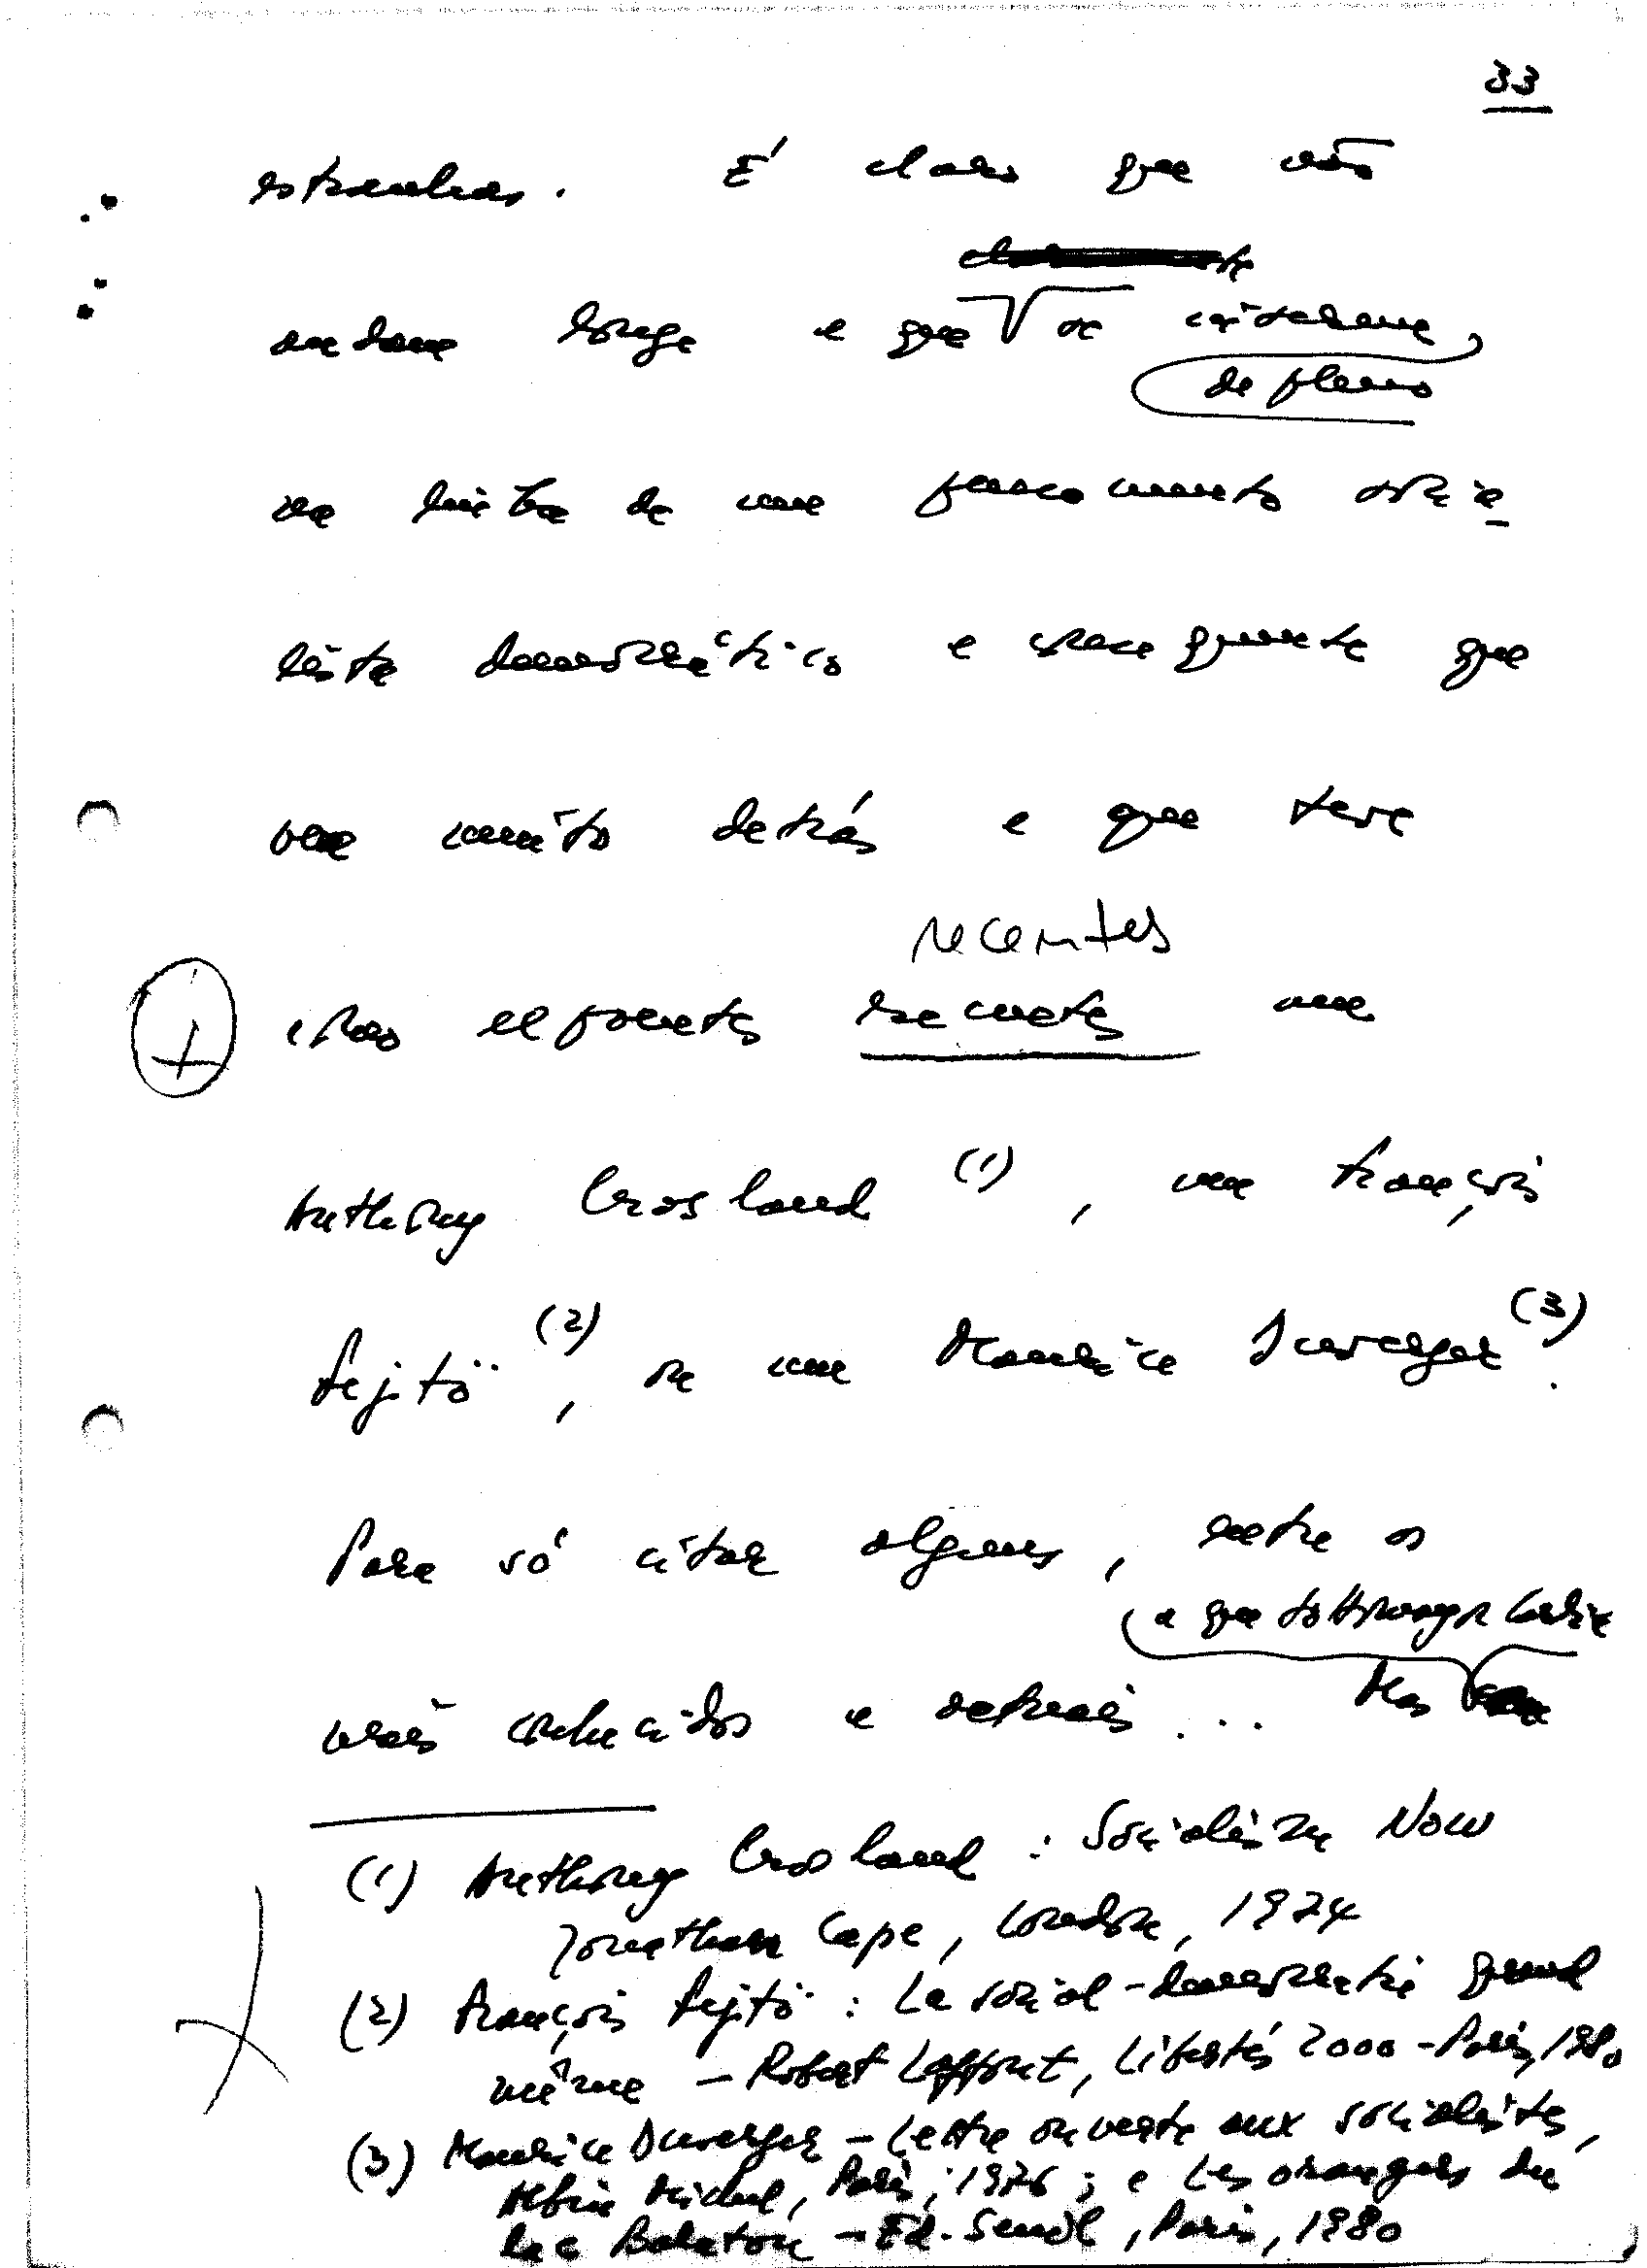 33
estranhos. É claro que não
andam longe e que se inscrevem,
de pleno
na linha de um pensamento socia
lista democrático e consequente que
vem muito detrás e que teve
recentes
como expoentes recentes um
Anthony Crosland (1), um François
Fejtö (2), ou um Maurice Duverger (3).
Para só citar alguns, entre os
mais conhecidos e actuais... Mas
(1) Anthony Crosland : Socialism Now
Jonathan Cape, London, 1974
(2) François Fejtö : La social-démocratie quand
même — Robert Laffont, Libertés 2000 - Paris, 1980
(3) Maurice Duverger — Lettre ouverte aux socialistes,
Albin Michel, Paris, 1976 ; e Les orangers du
lac Balaton — Ed. Seuil, Paris, 1980